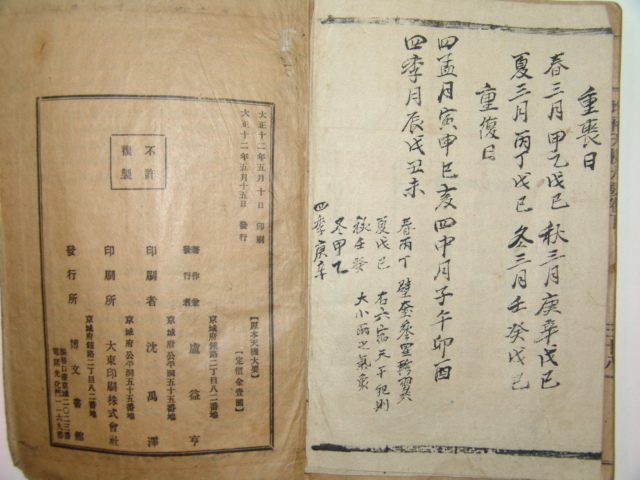 重喪日
春三月 甲乙戊己 秋三月 庚辛戊己
夏三月 丙丁戊己 冬三月 壬癸戊己
重復日
四孟月 寅申巳亥 四中月 子午卯酉
四季月 辰戌丑未
春丙丁 壁奎參星軫翼
夏戊己 右六宿 天干犯則
秋壬癸 大小雨之氣
冬甲乙
四季庚辛
大正十二年五月十日 印刷
大正十二年五月十五日 發行
不許
複製
【原本天機大要】
【定價金壹圓】
京城府鍾路二丁目八二番地
著作兼
發行者 盧益亨
京城府公平洞五十五番地
印刷者 沈禹澤
京城府公平洞五十五番地
印刷所 大東印刷株式會社
京城府鍾路二丁目八二番地
發行所 博文書館
振替口座京城二〇二三番
電話光化門一一六九番